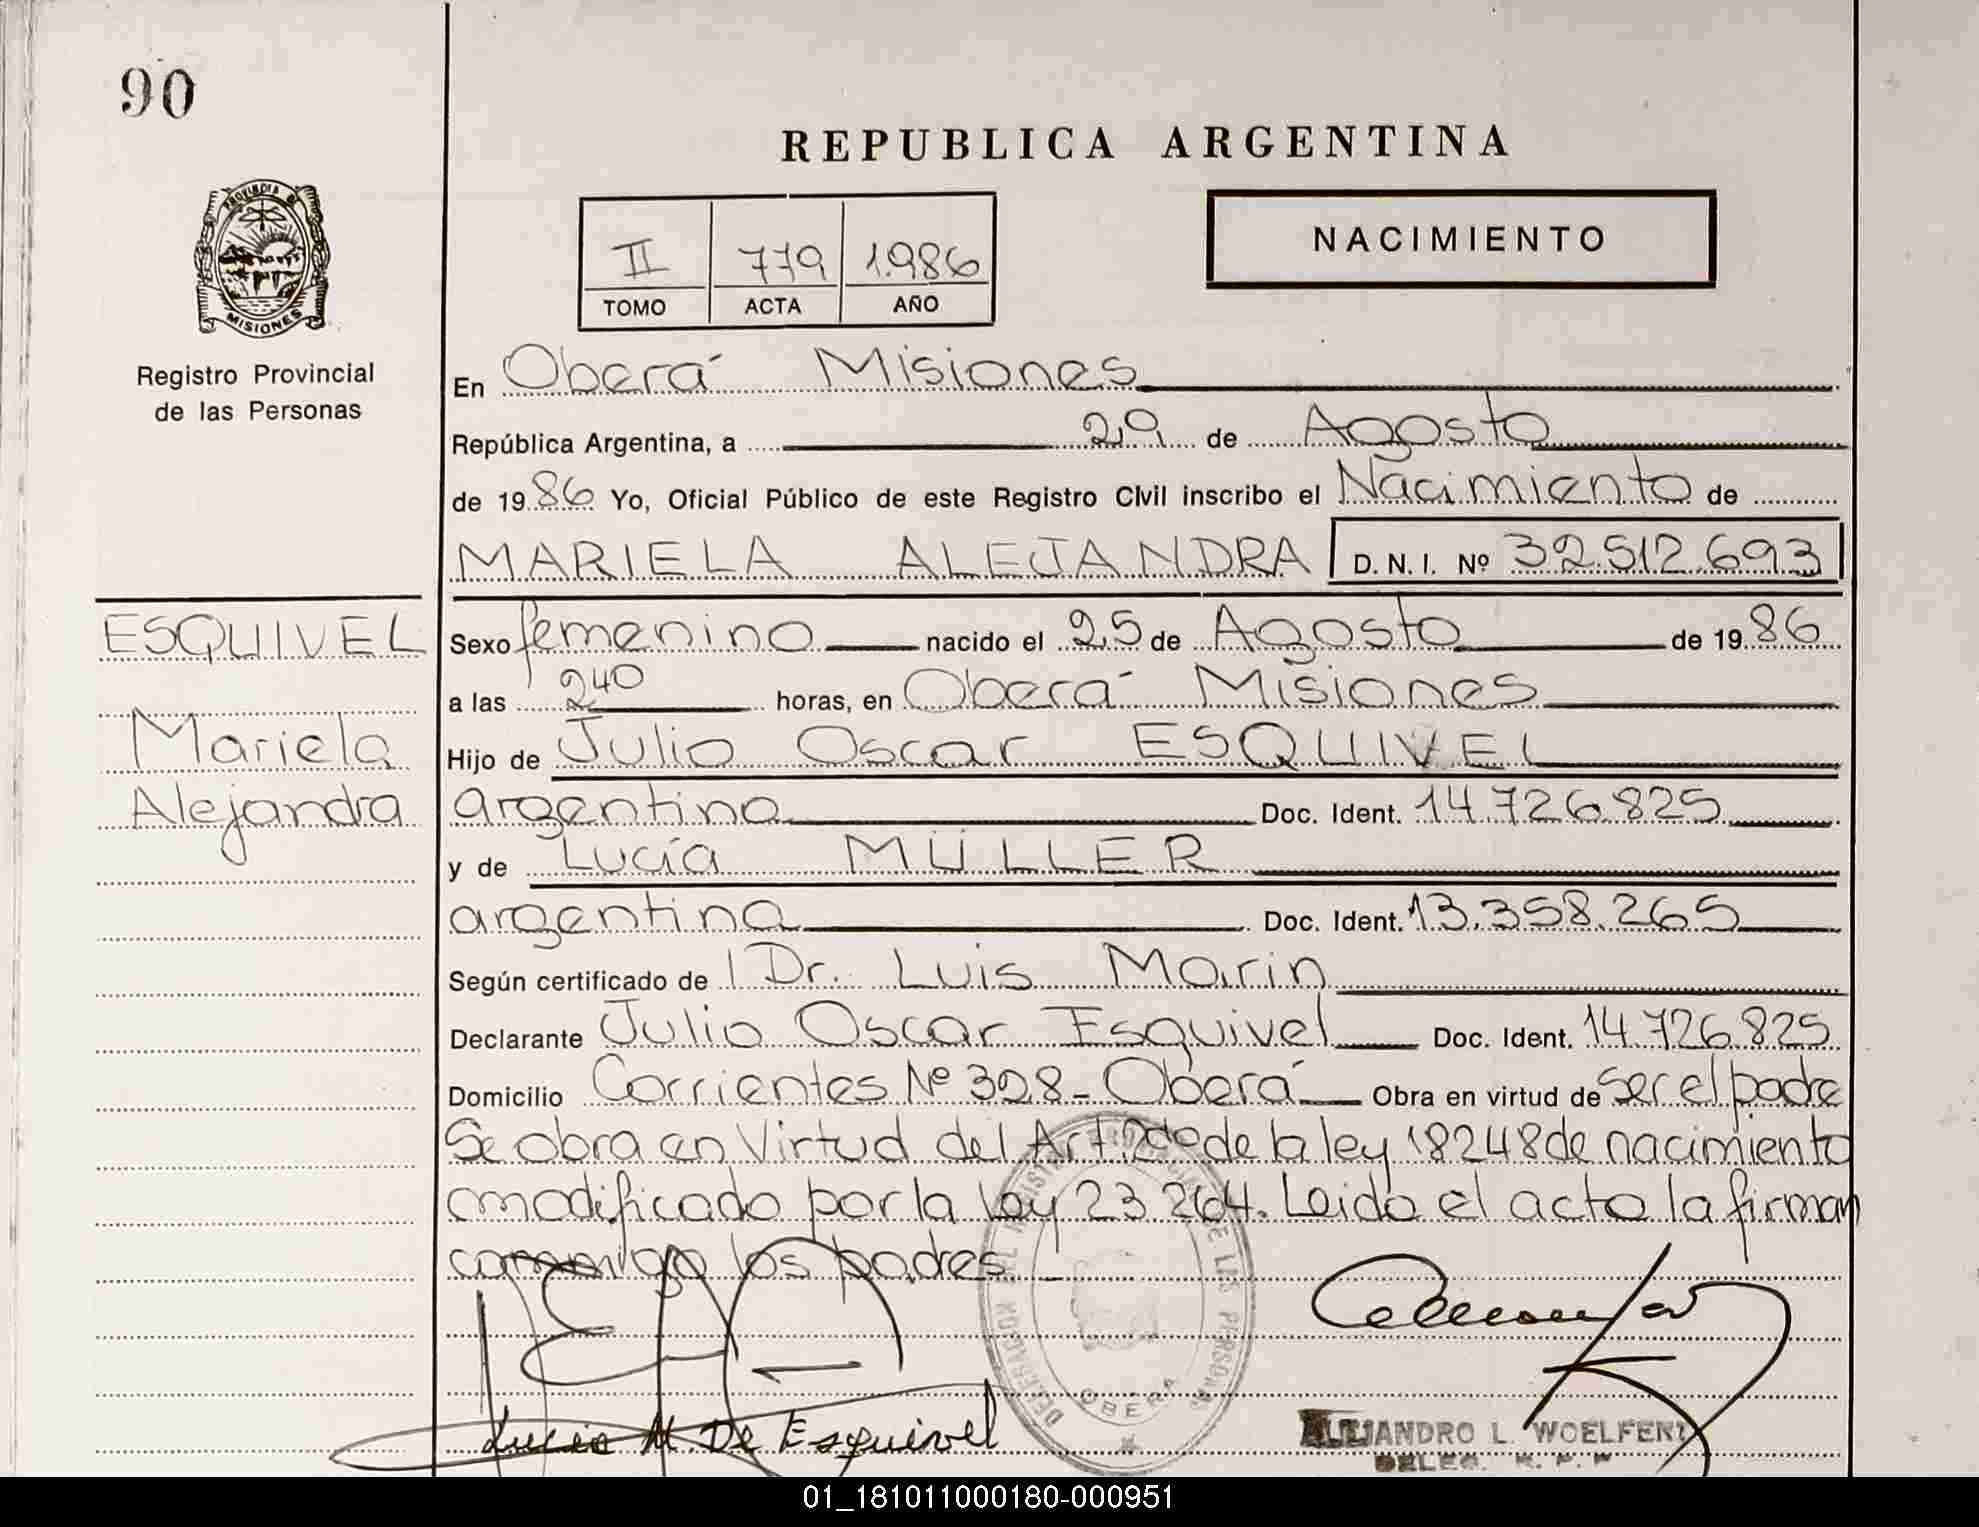 90
REPUBLICA ARGENTINA
PROVINCIA DE
MISIONES
Registro Provincial
de las Personas
II 779 1.986
TOMO ACTA AÑO
NACIMIENTO
En Oberá Misiones
República Argentina, a 29 de Agosto
de 1986 Yo, Oficial Público de este Registro Civil inscribo el Nacimiento de
MARIELA ALEJANDRA D. N. I. Nº 32.512.693
ESQUIVEL
Mariela
Alejandra
Sexo femenino nacido el 25 de Agosto de 1986
a las 240 horas, en Oberá Misiones
Hijo de Julio Oscar ESQUIVEL
argentino Doc. Ident. 14.726.825
y de Lucía MÜLLER
argentina Doc. Ident. 13.358.265
Según certificado de Dr. Luis Marin
Declarante Julio Oscar Esquivel Doc. Ident. 14.726.825
Domicilio Corrientes Nº 328 - Oberá Obra en virtud de ser el padre
Se obra en Virtud del Art. de la ley 18248 de nacimiento
modificado por la ley 23.264. Leida el acta la firman
conmigo los padres
Lucia M. De Esquivel
OBERA
ALEJANDRO L. WOELFERT
01_181011000180-000951